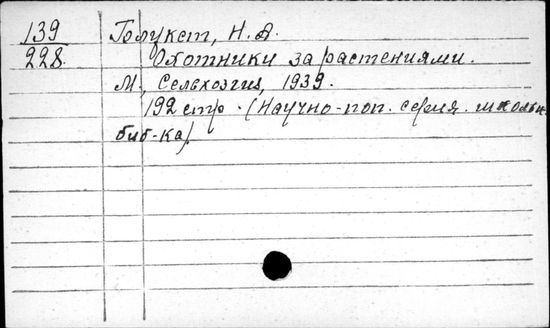 139 Блукет, Н. А.
228. Охотники за растениями.
М., Сельхозгиз, 1939.
192 стр. (Научно-поп. серия. школьн.
биб-ка).